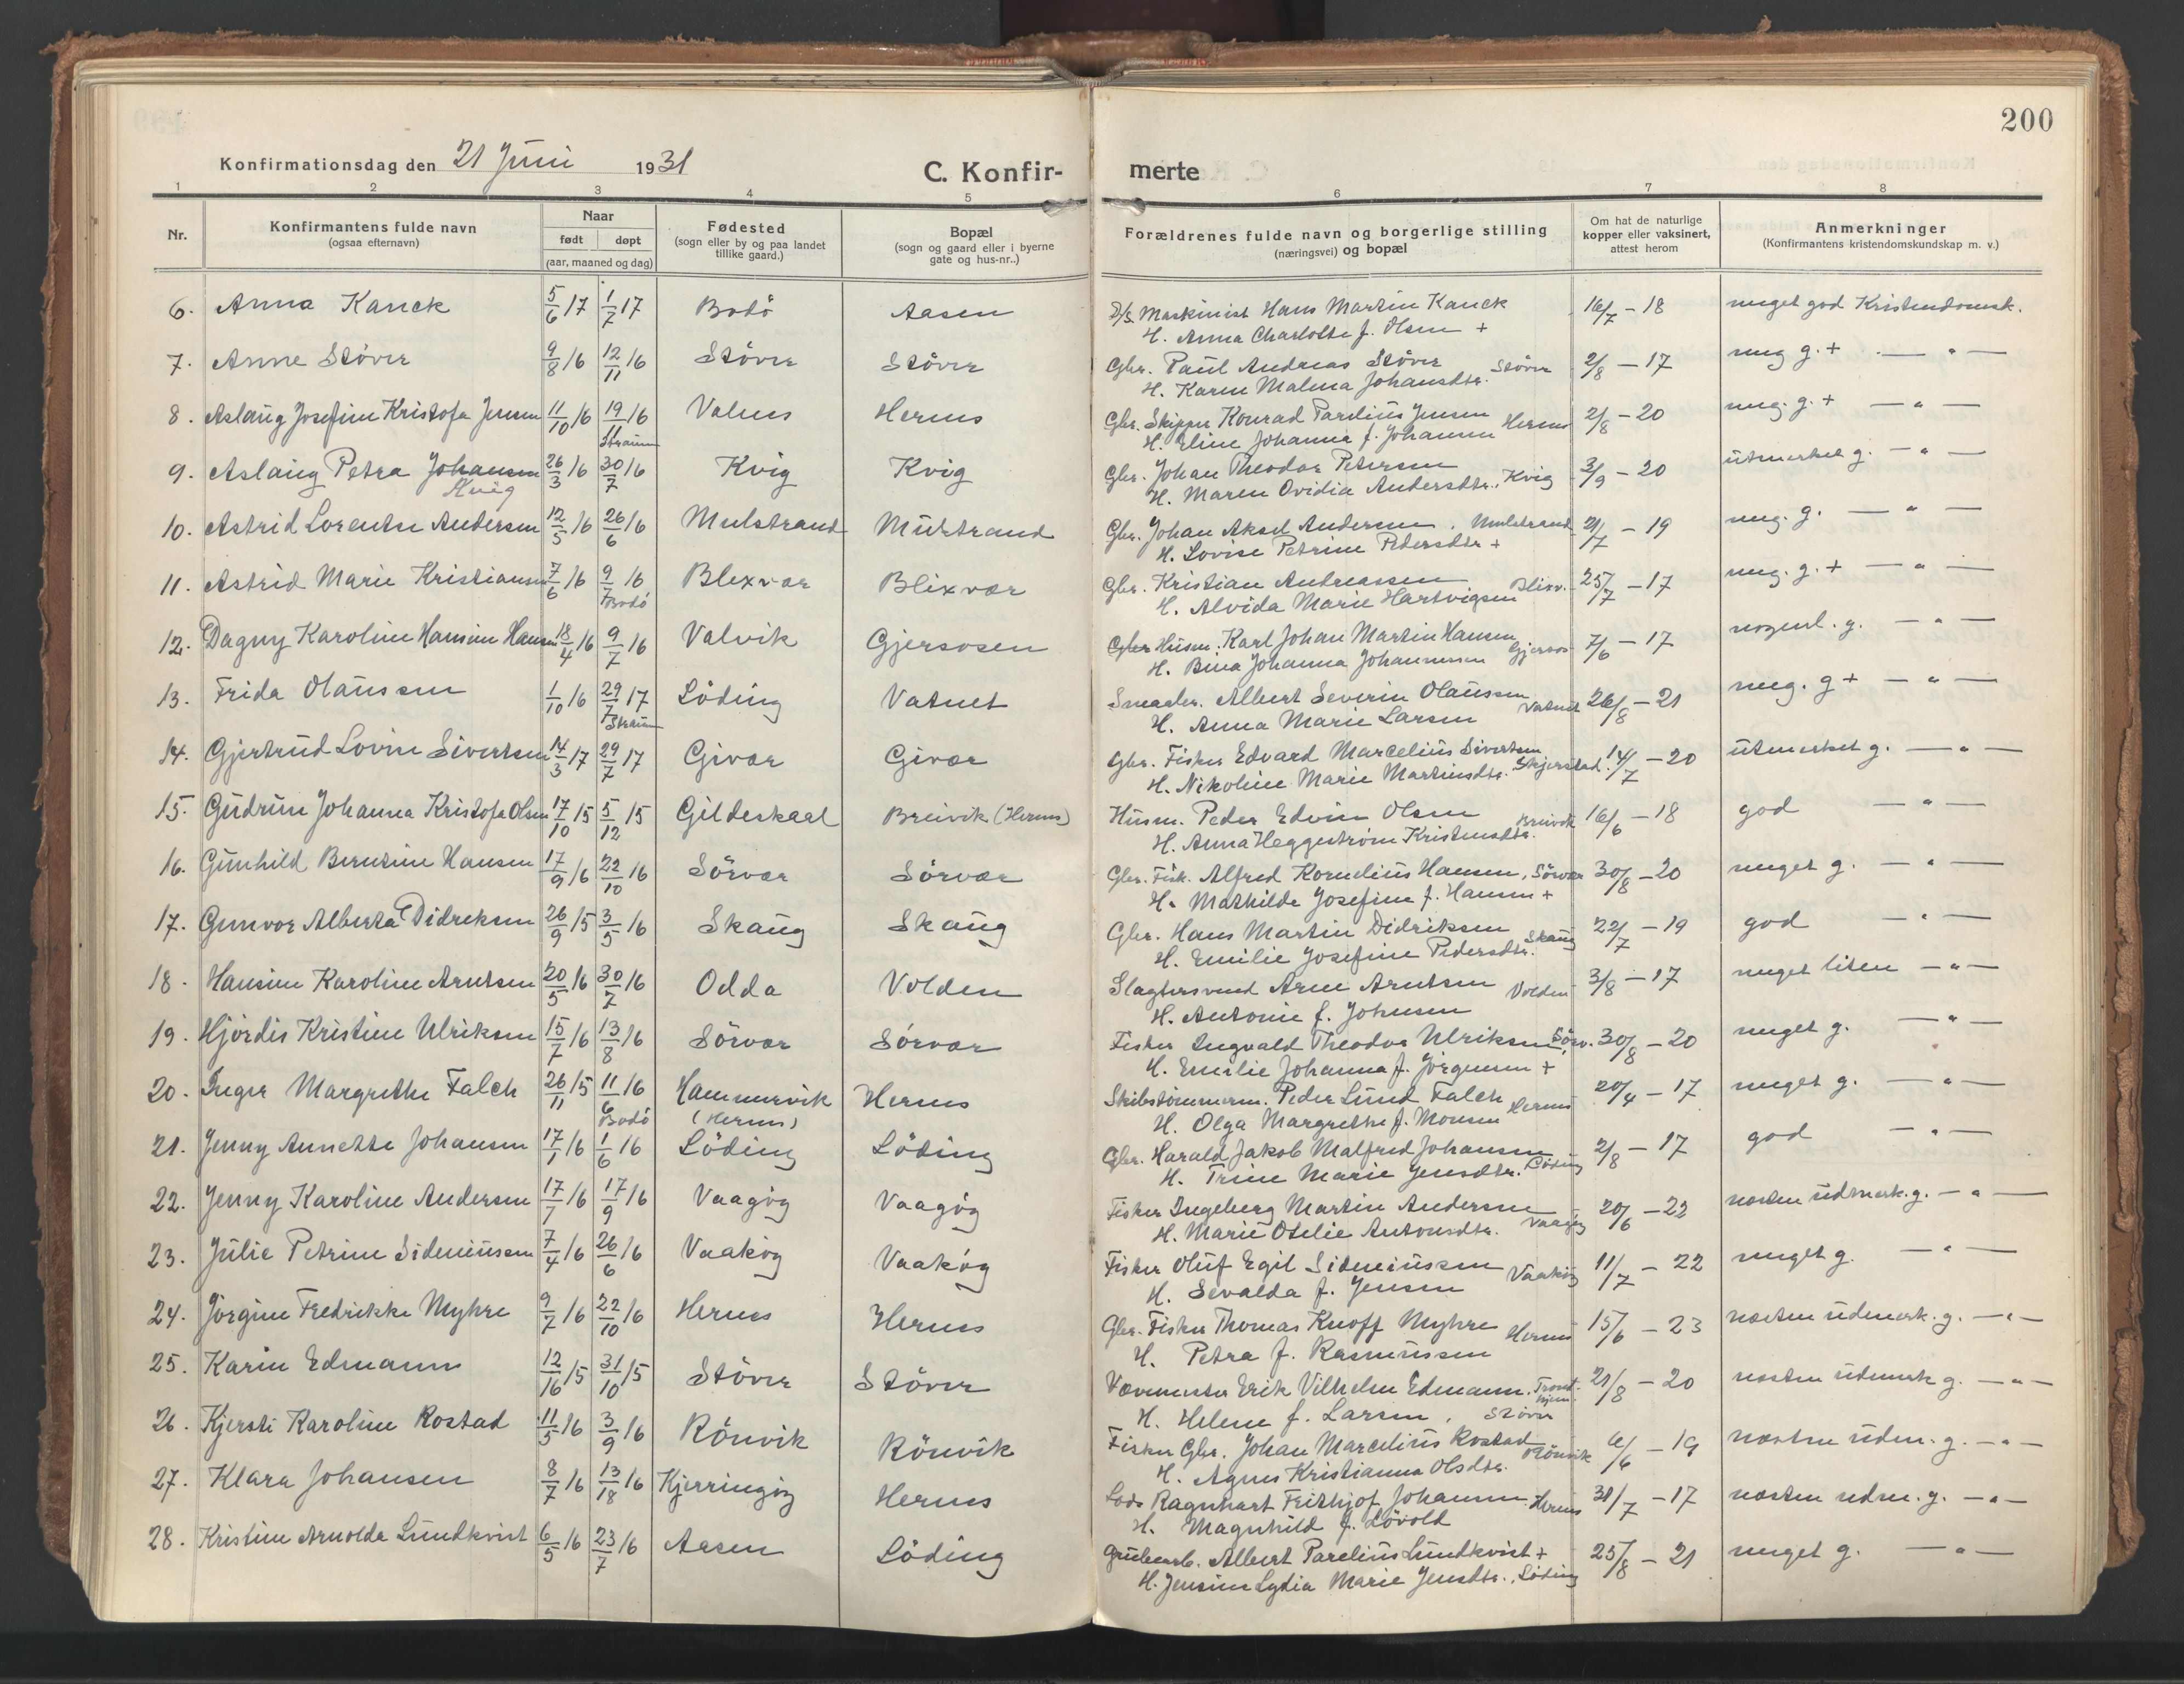 200
Konfirmationsdag den 21 Juni 1931
C. Konfir-
merte
1 2 3 4 5 6 7 8
Nr.
Konfirmantens fulde navn
(ogsaa efternavn)
Naar
født døpt
(aar, maaned og dag)
Fødested
(sogn eller by og paa landet
tillike gaard.)
Bopæl
(sogn og gaard eller i byerne
gate og hus-nr..)
Forældrenes fulde navn og borgerlige stilling
(næringsvei) og bopæl
Om hat de naturlige
kopper eller vaksinert,
attest herom
Anmerkninger
(Konfirmantens kristendomskundskap m. v.)
6. Anna Kanck 5/6 17 1/7 17 Bodö Aasen D/S. Maskinist Hans Martin Kanck 16/7 - 18 meget god Kristendomsk.
H. Anna Charlotte f. Olsen +
7. Anne Stöver 9/8 16 12/11 16 Stöver Stöver Gbr. Paul Andreas Stöver Stöver 2/8 - 17 meg g. + — " —
H. Karen Malena Johansdtr.
8. Aslaug Josefine Kristofa Jensen 11/10 16 19/11 16 Valnes Hernes Gbr. Skipper Konrad Parelius Jensen Hernes 2/8 - 20 meg. g. + — " —
Straum H. Eline Johanna f. Johansen
9. Aslaug Petra Johansen 26/3 16 30/7 16 Kvig Kvig Gbr. Johan Theodor Petersen 3/9 - 20 utmerket g. — " —
Kvig H. Maren Ovidia Andersdtr., Kvig
10. Astrid Lorentse Andersen 12/5 16 26/6 16 Mulstrand Mulstrand Gbr. Johan Aksel Andersen, Mulstrand 21/7 - 19 meg. g. — " —
H. Lovise Petrine Pedersdtr +
11. Astrid Marie Kristiansen 7/6 16 9/7 16 Blixvær Blixvær Gbr. Kristian Andreassen Blixv. 25/7 - 17 meg. g. + — " —
Bodö H. Alvida Marie Hartvigsen
12. Dagny Karoline Hansine Hansen 18/4 16 9/7 16 Valvik Gjersosen Gbr Husm. Karl Johan Martin Hansen Gjersos 7/6 - 17 nogenl. g. — " —
H. Bina Johanna Johannessen
13. Frida Olaussen 1/10 16 29/7 17 Löding Vatnet Smaabr. Albert Severin Olaussen Vatnet 26/8 - 21 meg. g + — " —
Straum H. Anna Marie Larsen
14. Gjertrud Lovise Sivertsen 14/3 17 29/7 17 Givær Givær Gbr. Fisker Edvard Marcelius Sivertsen 14/7 - 20 utmerket g. — " —
H. Nikoline Marie Martinsdtr. Skjerstad.
15. Gudrun Johanna Kristofa Olsen 17/10 15 5/12 15 Gildeskaal Breivik (Hernes) Husm. Peder Edvin Olsen Breivik 16/6 - 18 god — " —
H. Anna Heggestrøm Kristensdtr.
16. Gunhild Berntine Hansen 17/9 16 22/10 16 Sörvær Sörvær Gbr. Fisk. Alfred Kornelius Hansen, Sörvær 30/8 - 20 meget g. — " —
H. Mathilde Josefine f. Hansen +
17. Gunvor Alberta Didriksen 26/9 15 3/5 16 Skaug Skaug Gbr. Hans Martin Didriksen Skaug 22/7 - 19 god — " —
H. Emilie Josefine Pedersdtr.
18. Hansine Karoline Arntsen 20/5 16 30/7 16 Odda Volden Slagtersvend Arne Arntsen Volden 3/8 - 17 meget liten — " —
H. Antonie f. Johnsen
19. Hjördis Kristine Ulriksen 15/7 16 13/8 16 Sörvær Sörvær Fisker Ingvald Theodor Ulriksen, Sörv. 30/8 - 20 meget g. — " —
H. Emilie Johanna f. Jörgensen +
20. Inger Margrethe Falch 26/11 15 11/6 16 Hammervik Hernes Skibstömmerm. Peder Lund Falch Hernes 20/4 - 17 meget g. — " —
Bodö (Hernes) H. Olga Margrethe f. Monsen
21. Jenny Annette Johansen 17/1 16 1/6 16 Löding Löding Gbr. Harald Jakob Malfred Johansen 2/8 - 17 god — " —
H. Trine Marie Jensdtr. Löding
22. Jenny Karoline Andersen 17/7 16 17/9 16 Vaagög Vaagög Fisker Ingeberg Martin Andersen 20/6 - 22 næsten udmerk. g. — " —
H. Marie Otelie Antonsdtr. Vaagög
23. Julie Petrine Sideniussen 7/4 16 26/6 16 Vaakög Vaakög Fisker Oluf Egil Sideniussen Vaakög 11/7 - 22 meget g. — " —
H. Sevalda f. Jensen
24. Jörgine Fredrikke Myhre 9/7 16 22/10 16 Hernes Hernes Gbr. Fisker Thomas Knoff Myhre Hernes 15/6 - 23 næsten udmerk. g. — " —
H. Petra f. Rasmussen
25. Karin Edmann 12/16 15 31/10 15 Stöver Stöver Værnmester Erik Vilhelm Edmann, Trond- 21/8 - 20 næsten udmerk g. — " —
hjem.
H. Helene f. Larsen, Stöver
26. Kjersti Karoline Rostad 11/5 16 3/9 16 Rönvik Rönvik Fisker Gbr. Johan Marcelius Rostad Rönvik 6/6 - 19 næsten udm. g. — " —
H. Agnes Kristianna Olsdtr.
27. Klara Johansen 8/7 16 13/18 16 Kjerringög Hernes Lods Ragnhart Frithjof Johansen Hernes 31/7 - 17 næsten udm. g. — " —
H. Magnhild f. Lövold
28. Kristine Arnolda Lundkvist 6/5 16 23/7 16 Aasen Löding Grubearb. Albert Parelius Lundkvist + 25/8 - 21 meget g. — " —
H. Jensine Lydia Marie Jensdtr., Löding